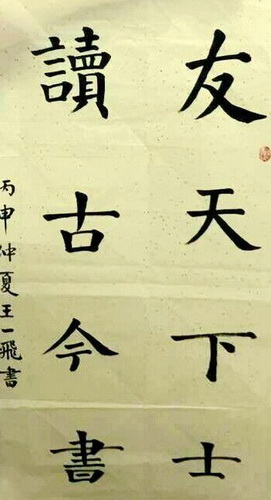 友天下士
讀古今書
丙申仲夏王一飛書